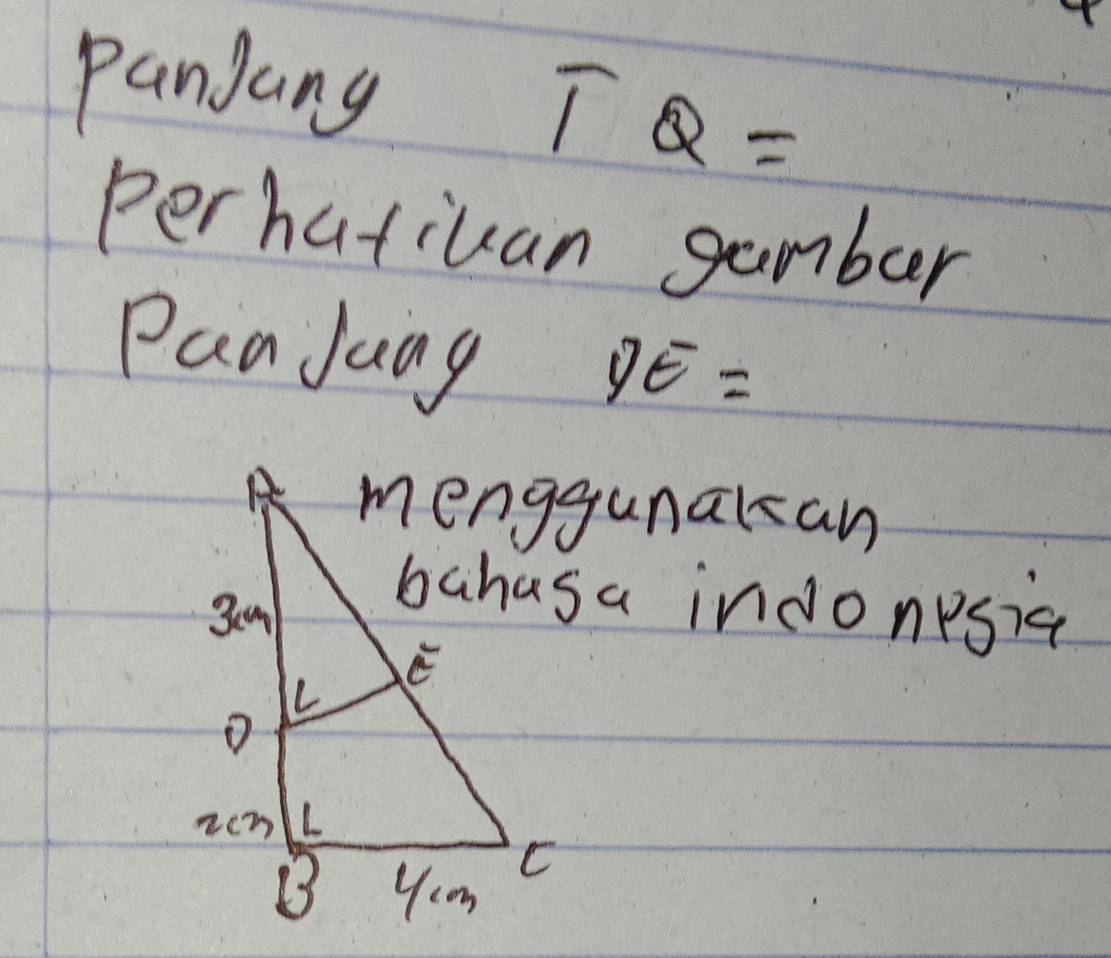 Panjang TQ =
Perhatikan gambar
Panjang DE =
A menggunakan
bahasa indonesia
3cm
E
L
D
2cm L
B 4cm C